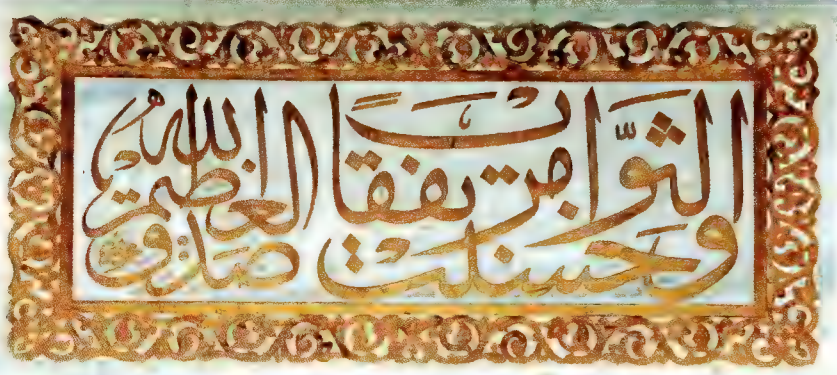 الثَّواب وحسنت مرتفقاً صدق الله العظيم